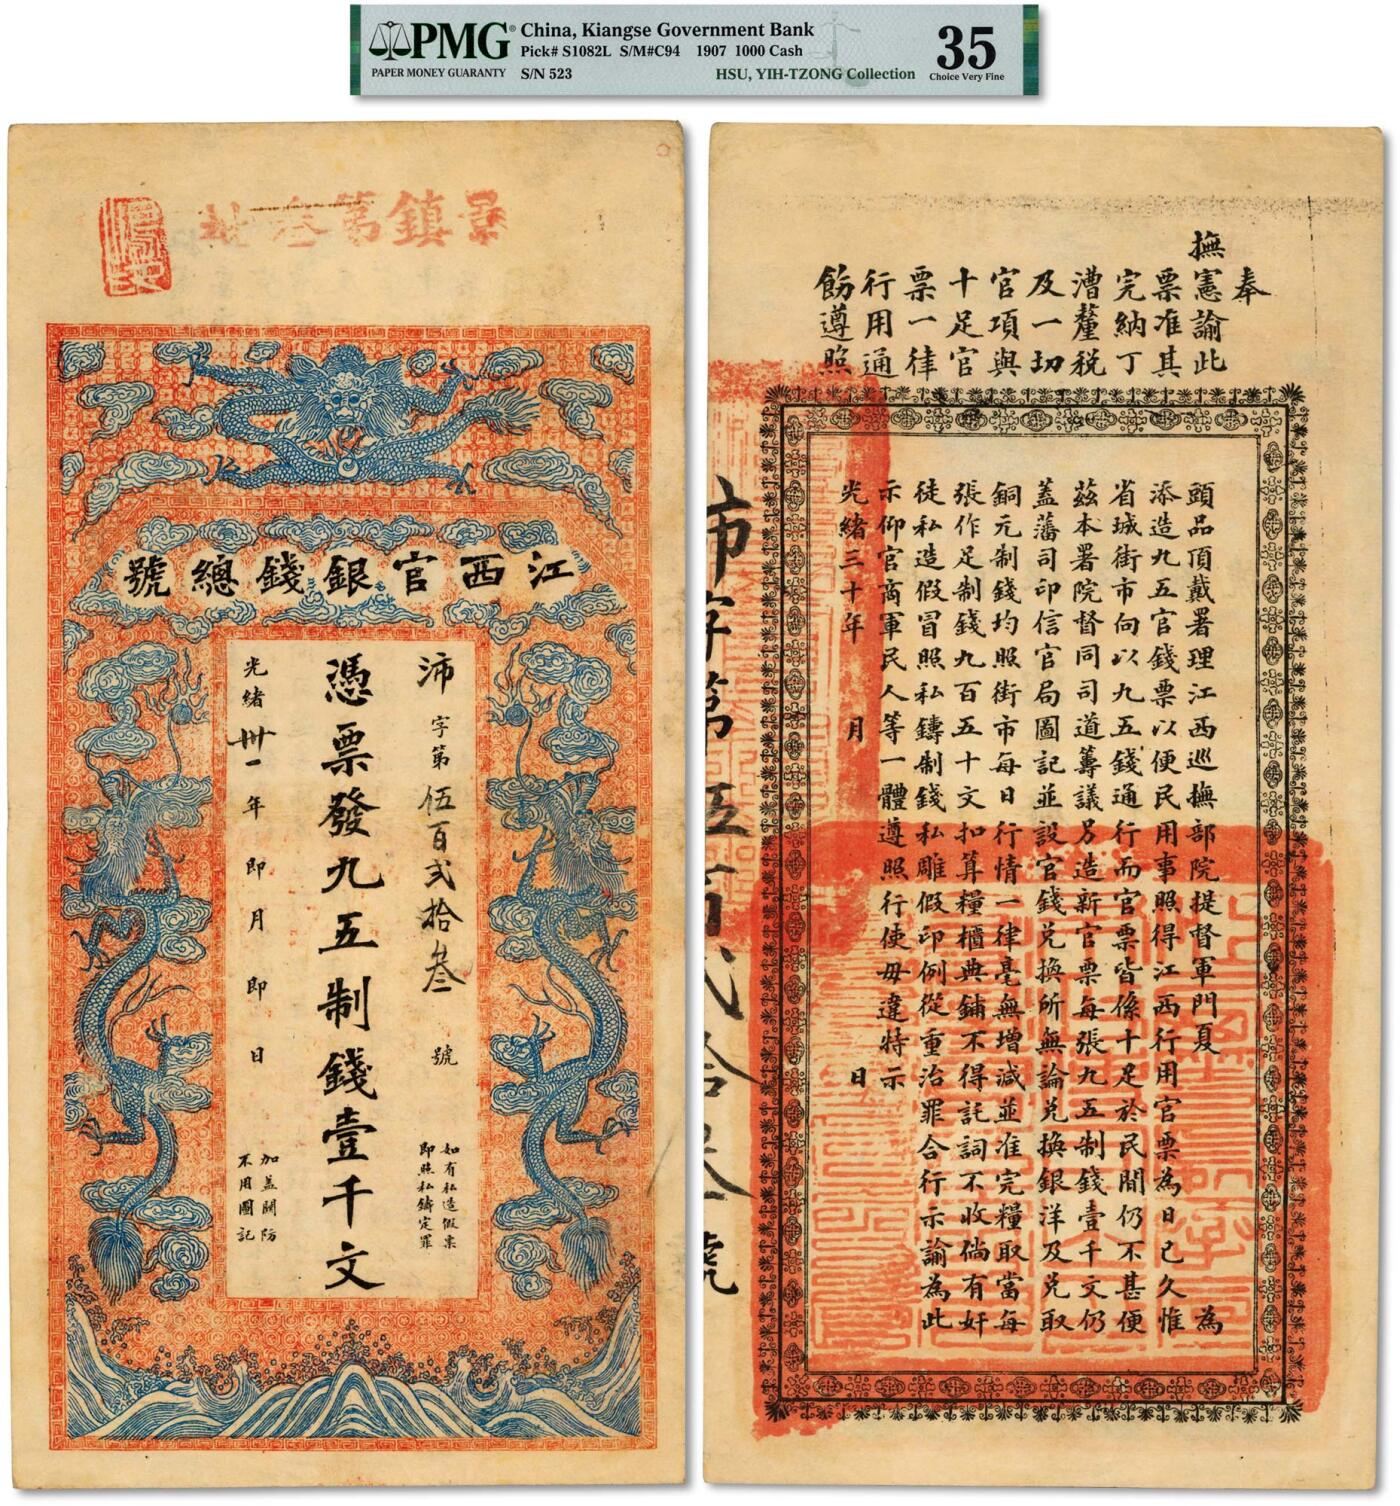 PMG
PAPER MONEY GUARANTY
China, Kiangse Government Bank
Pick# S1082L S/M#C94 1907 1000 Cash
S/N 523
HSU, YIH-TZONG Collection
35
Choice Very Fine
景鎮第叁
江西官銀錢總號
沛字第伍百貳拾叁號
如有私造假票
即照私鑄定罪
憑票發九五制錢壹千文
光緒卅一年即月即日
加蓋關防
不用圖記
奉
撫憲諭此
票准其
完納丁
漕釐稅
及一切
官項與
十足官
票一律
行用通
飭遵照
頭品頂戴署理江西巡撫部院提督軍門夏 為
添造九五官錢票以便民用事照得江西行用官票為日已久惟
省城街市向以九五錢通行而官票皆係十足於民間仍不甚便
茲本署院督同司道籌議另造新官票每張九五制錢壹千文仍
蓋藩司印信官局圖記並設官錢兌換所無論兌換銀洋及兌取
銅元制錢均照街市每日行情一律毫無增減並准完糧取當每
張作足制錢九百五十文扣算糧櫃典鋪不得託詞不收倘有奸
徒私造假冒照私鑄制錢私雕假印例從重治罪合行示諭為此
示仰官商軍民人等一體遵照行使毋違特示
光緒三十年 月 日
沛字第伍百貳拾叁號